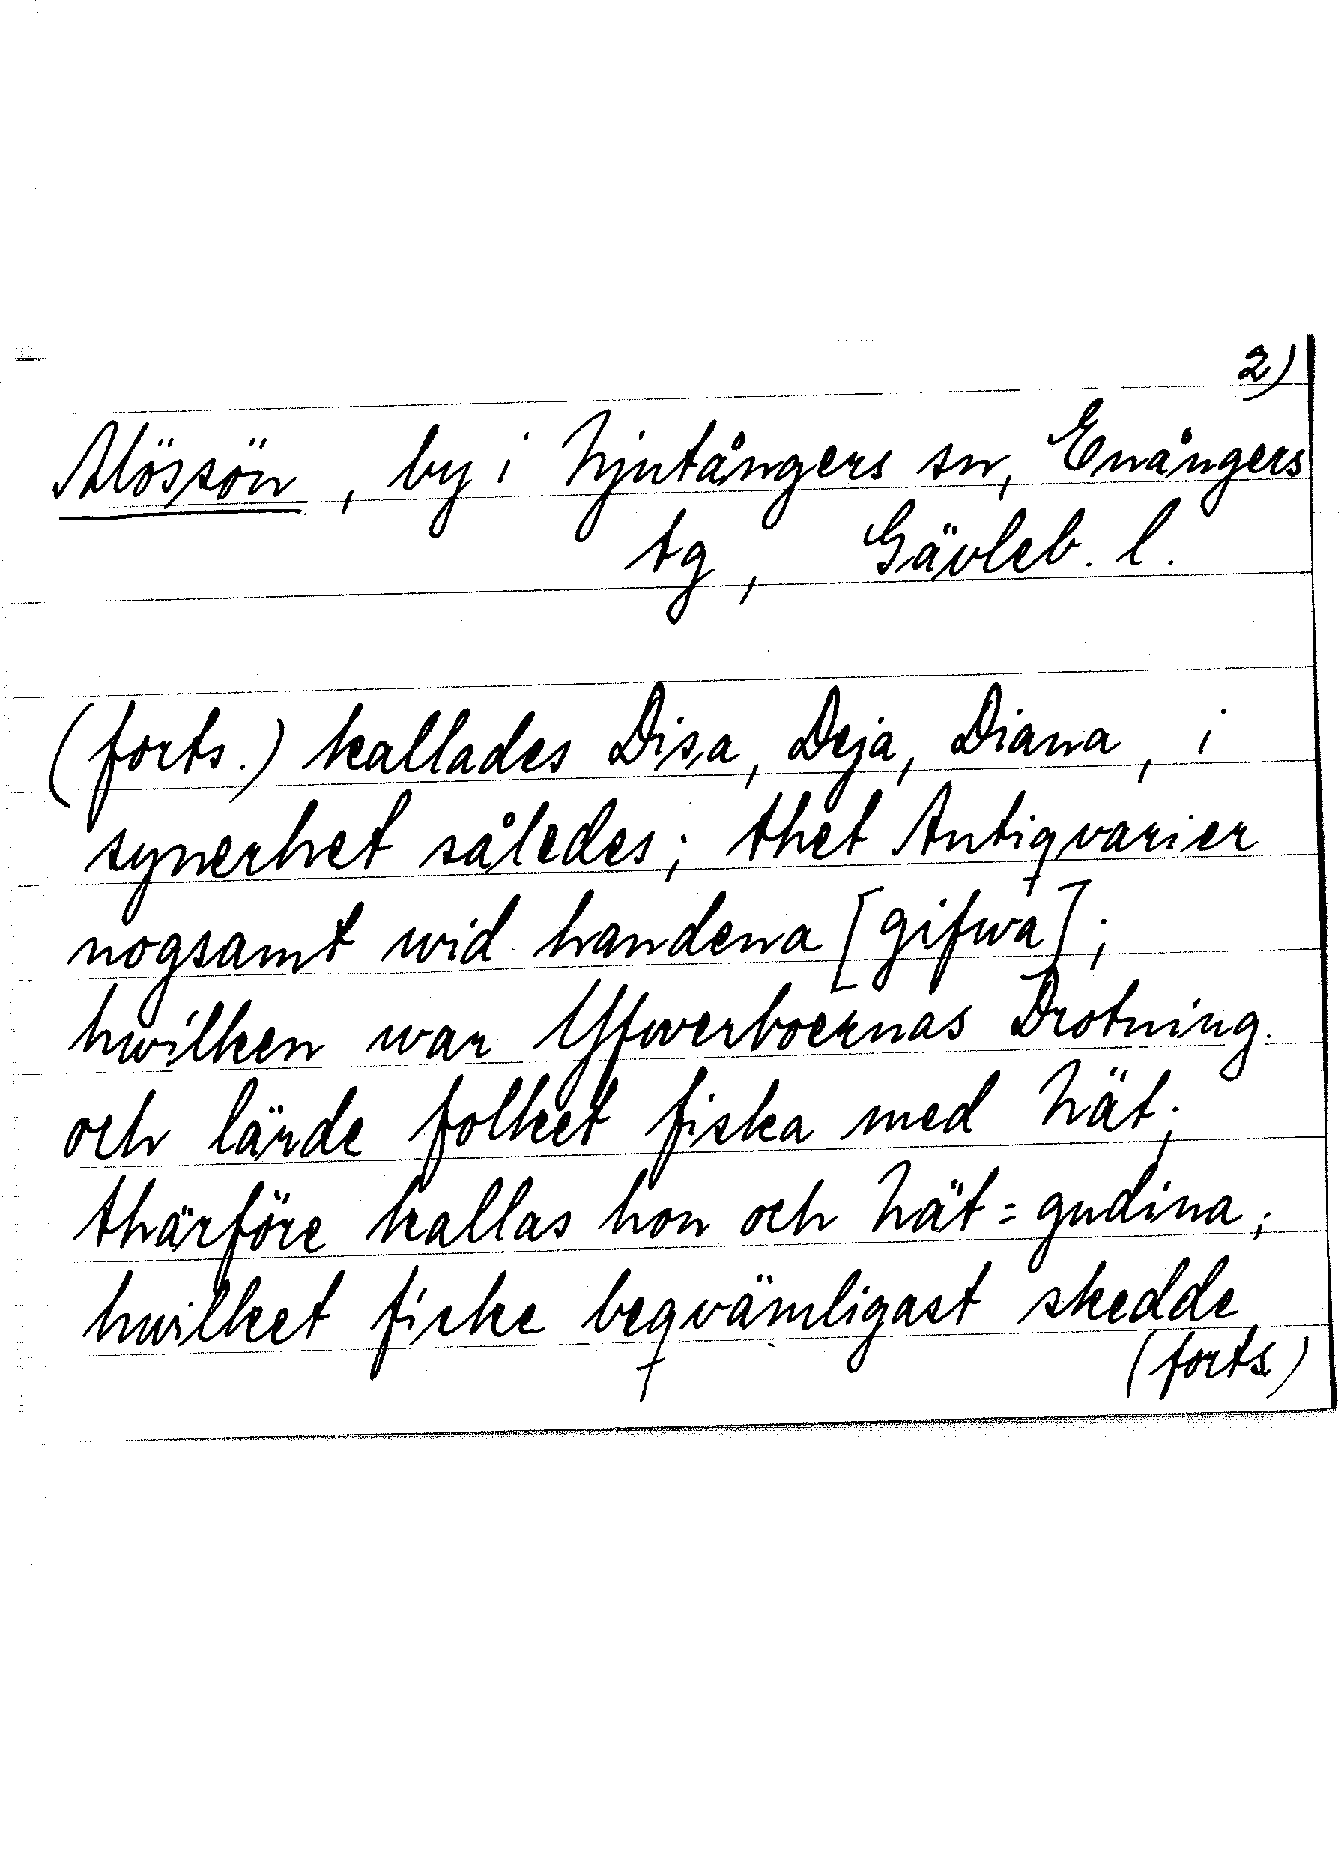 2)
Alössön, by i Njutångers sn, Enångers
tg, Gävleb. l.
(forts.) kallades Disa, Deja, Diana, i
synerhet således; thet Antiqvarier
nogsamt wid handena [gifwa];
hwilken war Yfwerboernas Drotning.
och lärde folket fiska med Nät;
thärföre kallas hon och Nät=gudina;
hwilket fiske beqvämligast skedde
(forts)